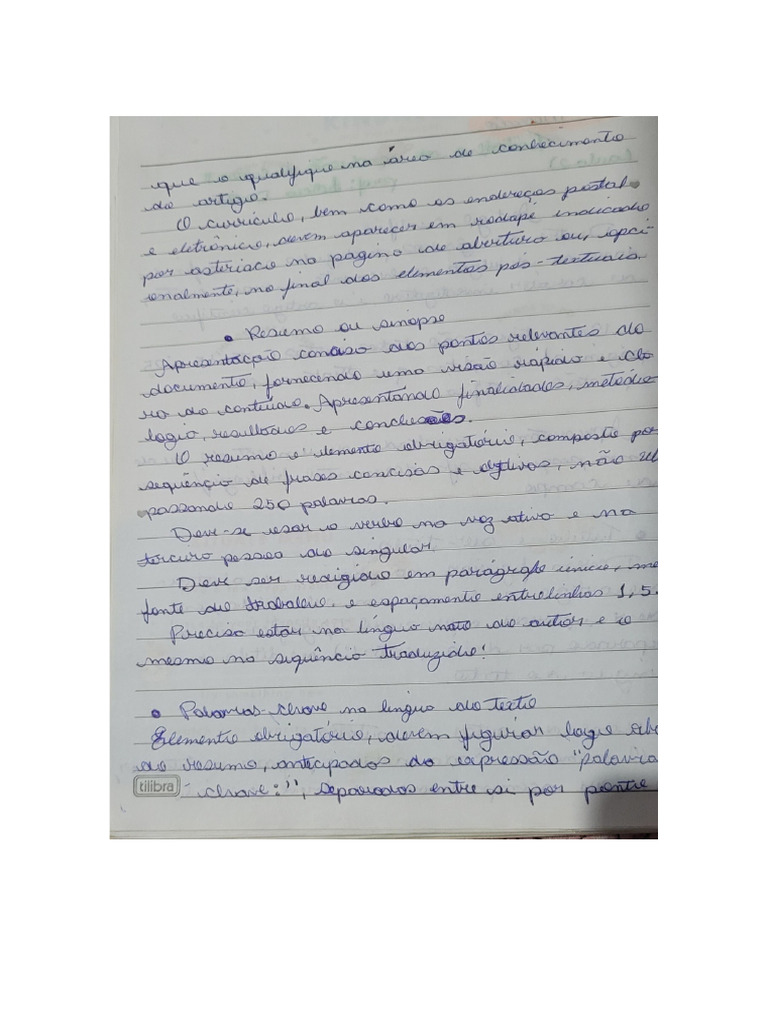 que o qualifique na área de conhecimento
do artigo.
O currículo, bem como os endereços postal
e eletrônico, devem aparecer em rodapé indicado
por asterisco na pagina de abertura ou, opci-
onalmente, no final dos elementos pós-textuais.
• Resumo ou sinopse
Apresentação concisa dos pontos relevantes do
documento, fornecendo uma visão rápida e cla
ra do contiúdo. Apresentando finalidades, metódo-
logia, resultados e conclusões.
O resumo e elemento obrigatório, composto por
sequência de frases concisas e objtivas, não ul
passando 250 palavras.
Deve-se usar o verbo na voz ativa e na
terceira pessoa do singular.
Deve ser redigido em parágrafo único, me
fonte do trabalho, e espaçamento entrelinhas 1,5.
Precisa estar na língua nata do autor e o
mesmo na sequência traduzido!
• Palavras-chave na língua do texto
Elemento obrigatório, devem figurar logo aba
do resumo, anticipados da expressão "palavra
chave:", separados entre si por ponto
tilibra